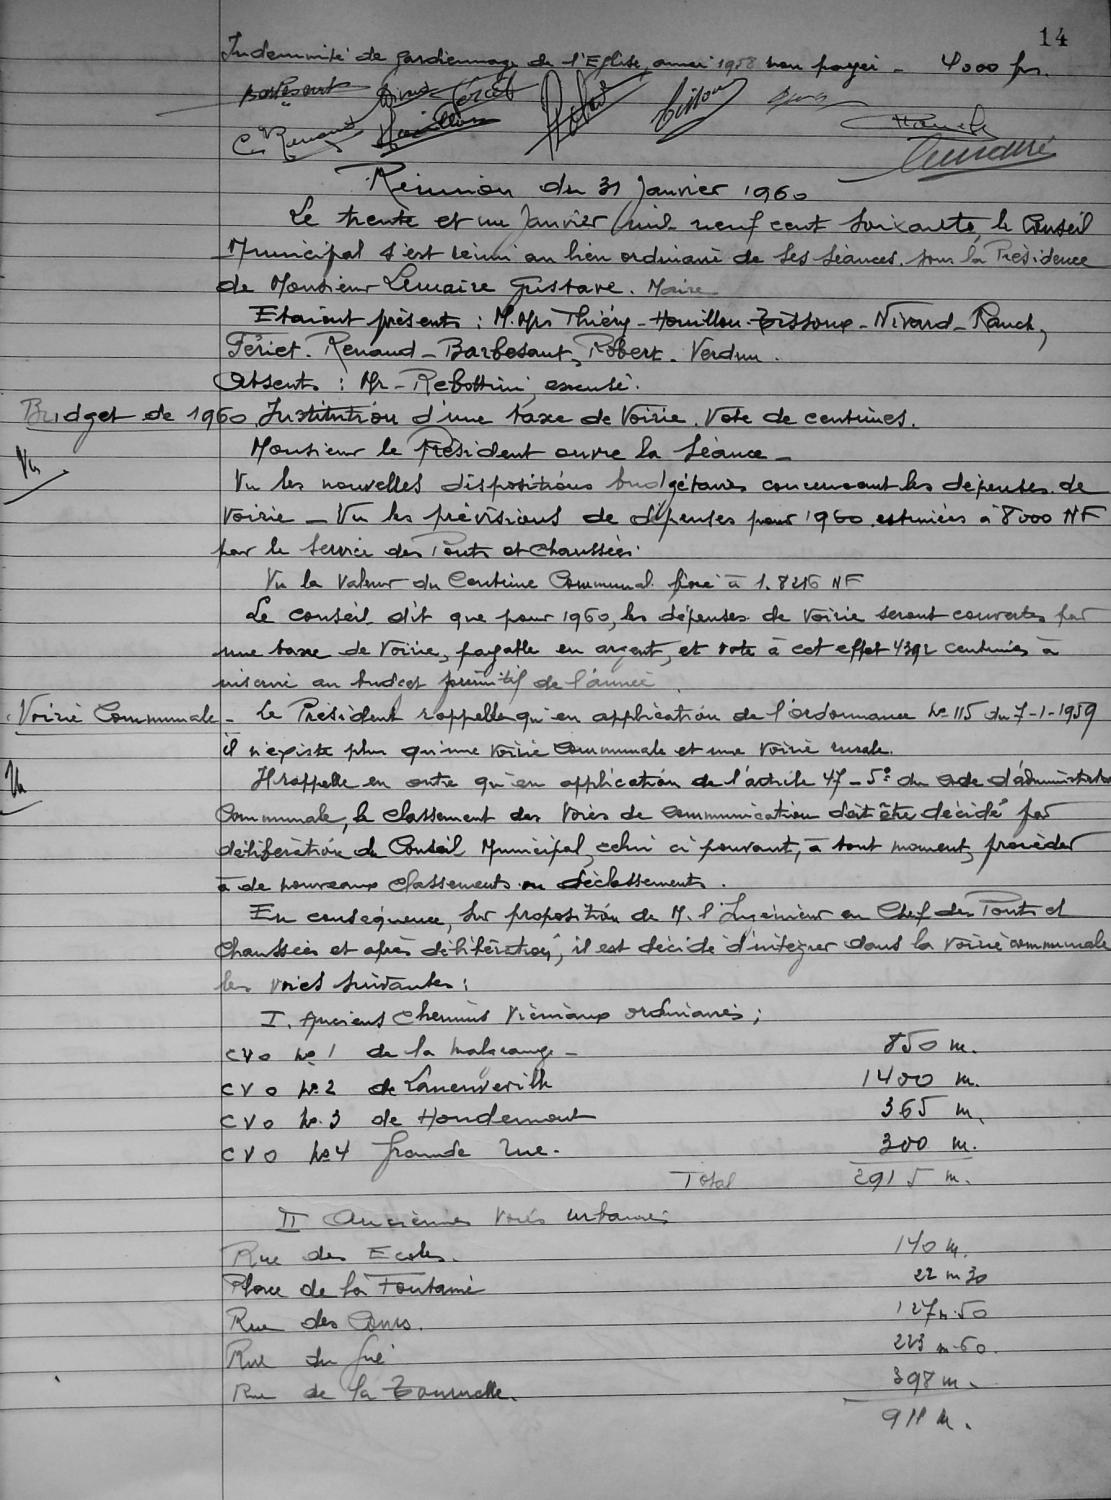 14
Indemnité de gardiennage de l'Eglise, année 1958 non payée - 4000 frs.
Barbesant Nivard Fériet Robert Tissoux
C. Renaud Houillon Rauch
Lemaire
Réunion du 31 Janvier 1960
Le trente et un Janvier mil neuf cent soixante, le Conseil
Municipal s'est réuni au lieu ordinaire de ses séances, sous la Présidence
de Monsieur Lemaire Gustave. Maire
Etaient présents : M. Mrs Thiéry - Houillon - Tissoux - Nivard - Rauch,
Fériet - Renaud - Barbesant, Robert - Verdun.
Absent : Mr - Rebottini, excusé.
Budget de 1960 Institution d'une taxe de Voirie. Vote de centimes.
Monsieur le Président ouvre la Séance -
Vu
Vu les nouvelles dispositions budgétaires concernant les dépenses de
Voirie - Vu les prévisions de dépenses pour 1960 estimées à 8000 NF
par le Service des Ponts et Chaussées.
Vu la valeur du Centime Communal fixé à 1.8216 NF
Le conseil dit que pour 1960, les dépenses de Voirie seront couvertes par
une taxe de Voirie, payable en argent, et vote à cet effet 4392 centimes à
inscrire au budget primitif de l'année
Voirie Communale - Le Président rappelle qu'en application de l'ordonnance No 115 du 7-1-1959
il n'existe plus qu'une voirie communale et une voirie rurale.
Vu
Il rappelle en outre qu'en application de l'article 47-5° du code d'administration
Communale, le classement des voies de communication doit être décidé par
délibération du Conseil Municipal, celui ci pouvant, à tout moment, procéder
à de nouveaux classements ou déclassements.
En conséquence, sur proposition de M. l'Ingénieur en Chef des Ponts et
Chaussées et après délibération, il est décidé d'intégrer dans la voirie communale
les voies suivantes :
I. Anciens Chemins Vicinaux ordinaires ;
CVO No 1 de la - 850 m.
CVO No 2 de Laneuveville 1400 m.
CVO No 3 de Houdemont 365 m.
CVO No 4 Grande Rue. 300 m.
Total 2915 m.
II Anciennes Voies urbaines
Rue des Ecoles. 140 m.
Place de la Fontaine 22 m 30
Rue des 127 m. 50
Rue du Gué 223 m. 60.
Rue de la Tournelle. 398 m.
911 m.